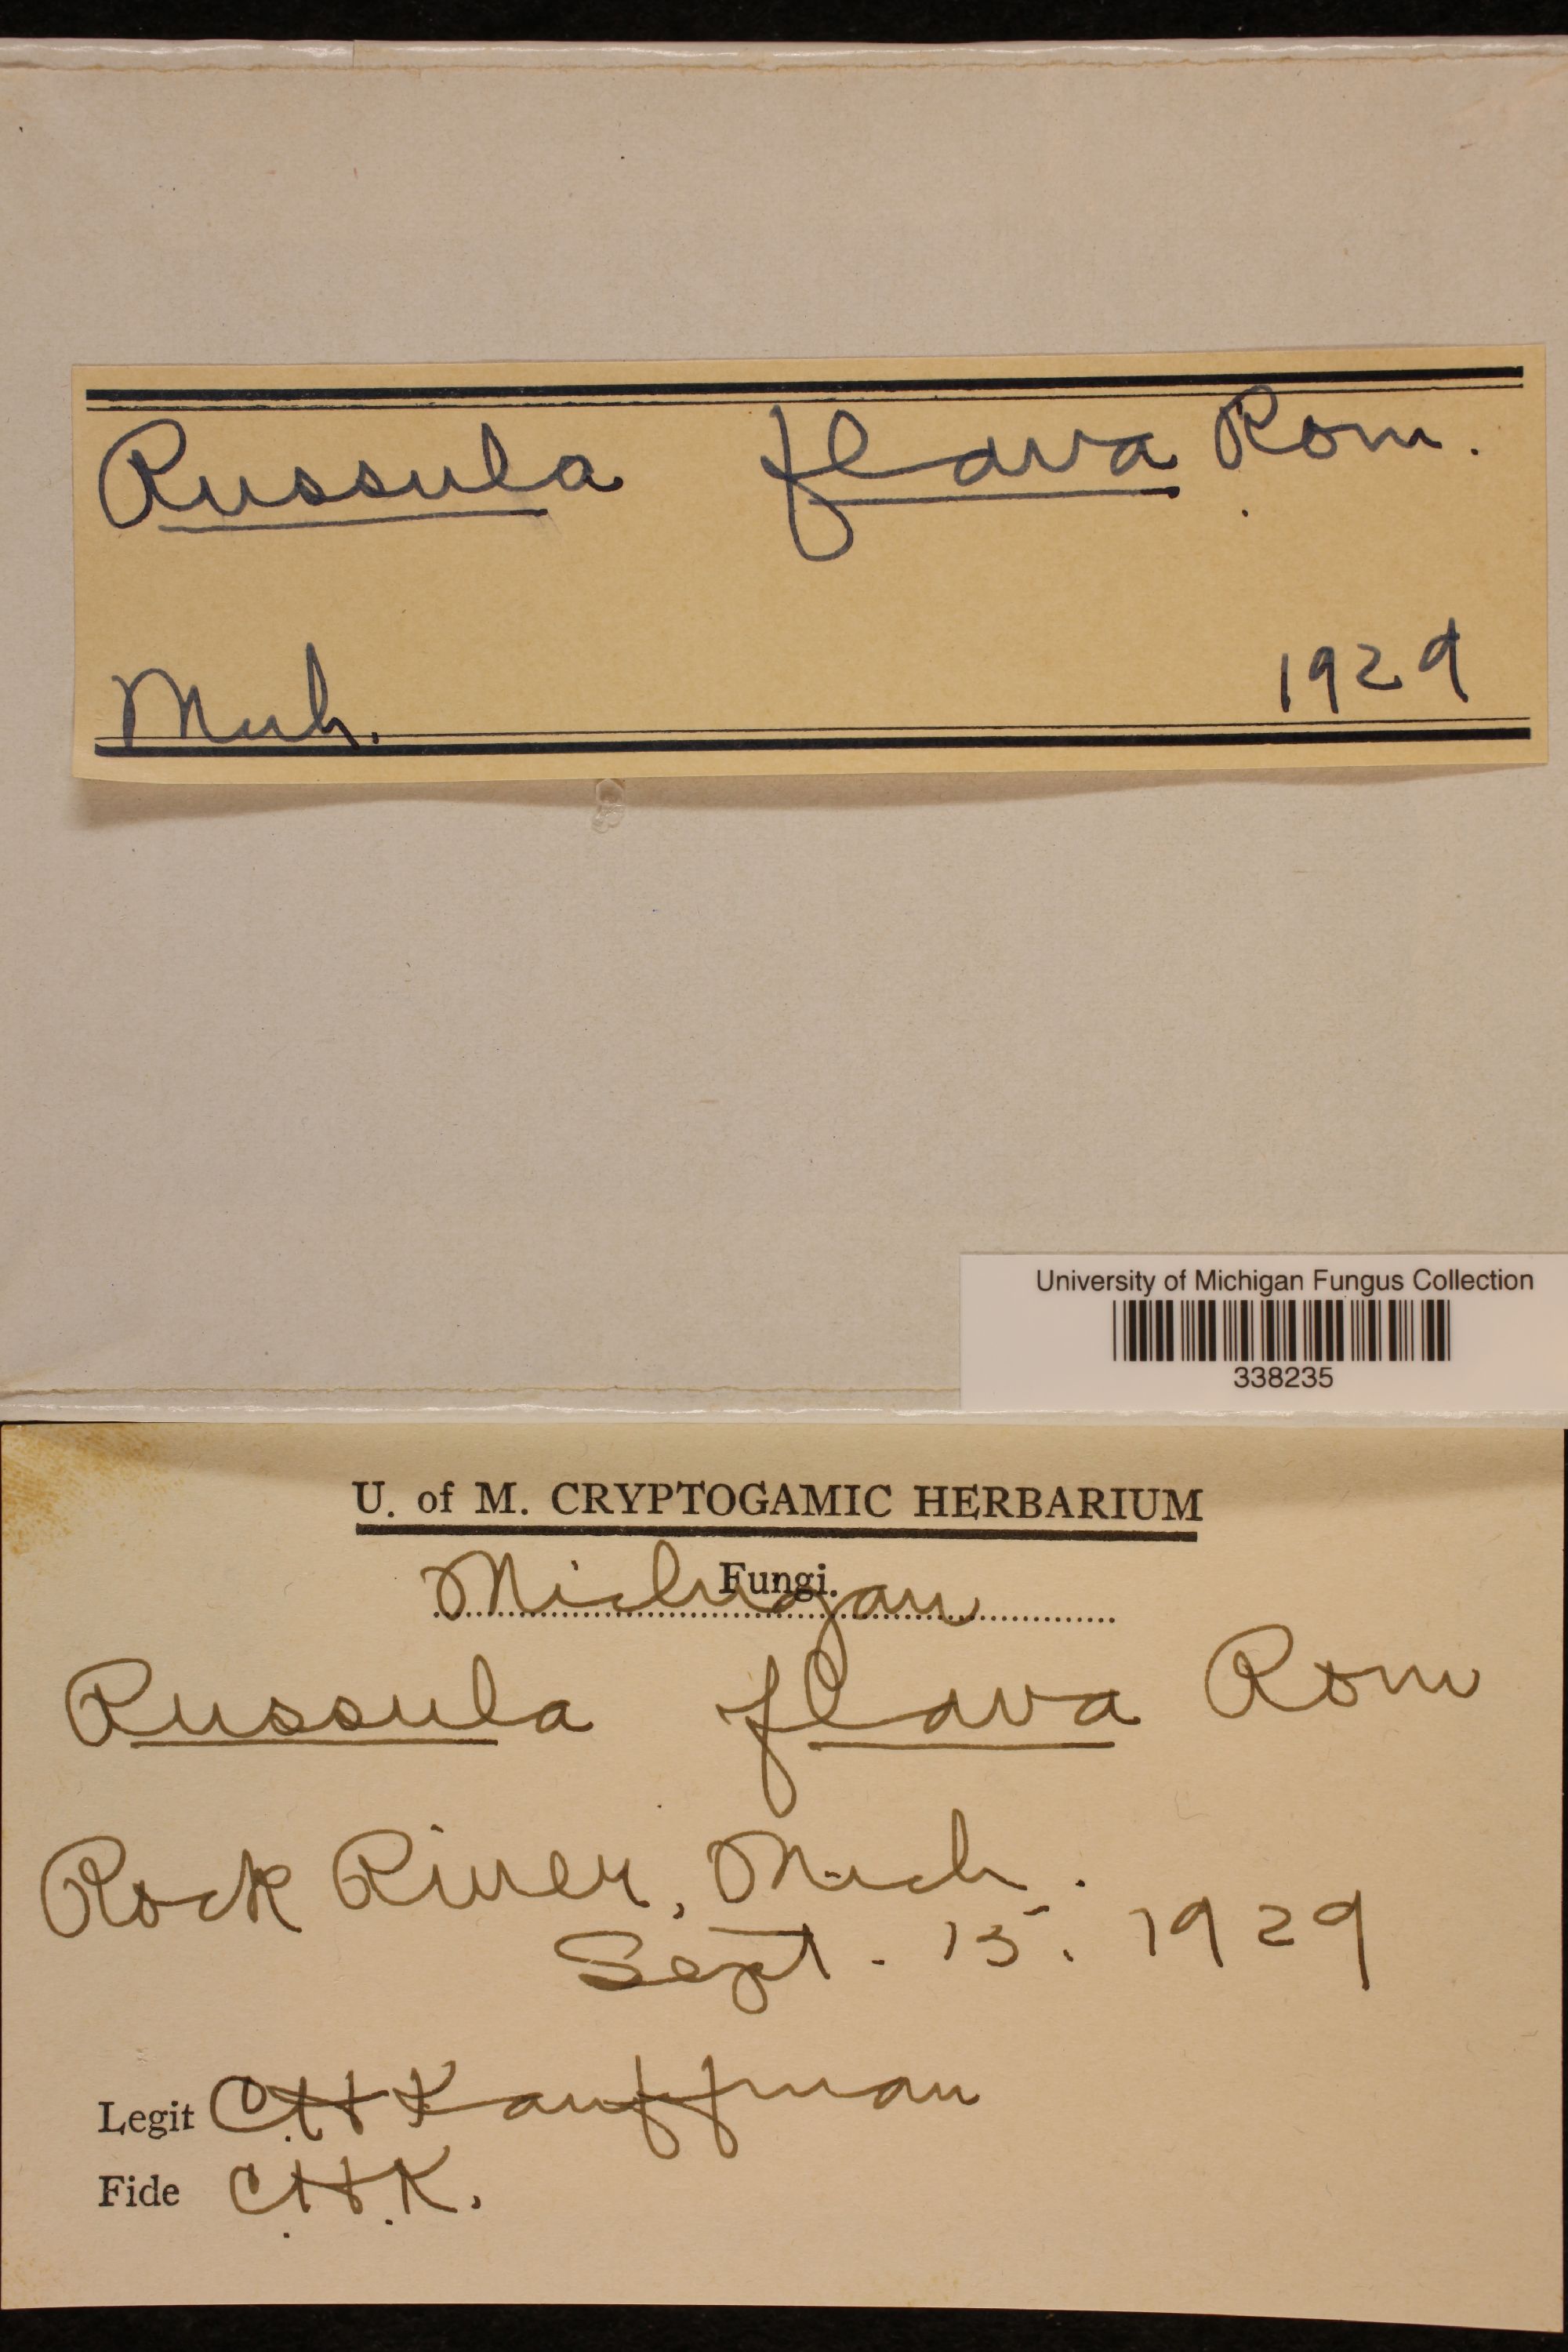 Russula flava Rom.
Mich. 1929
University of Michigan Fungus Collection
338235
U. of M. CRYPTOGAMIC HERBARIUM
Fungi.
Michigan
Russula flava Rom
Rock River, Mich.
Sept. 15. 1929
Legit C.H. Kauffman
Fide C.H.K.